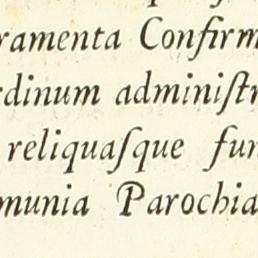 ramenta Confirm
rdinum adminiſtr
reliquaſque fun
munia Parochia